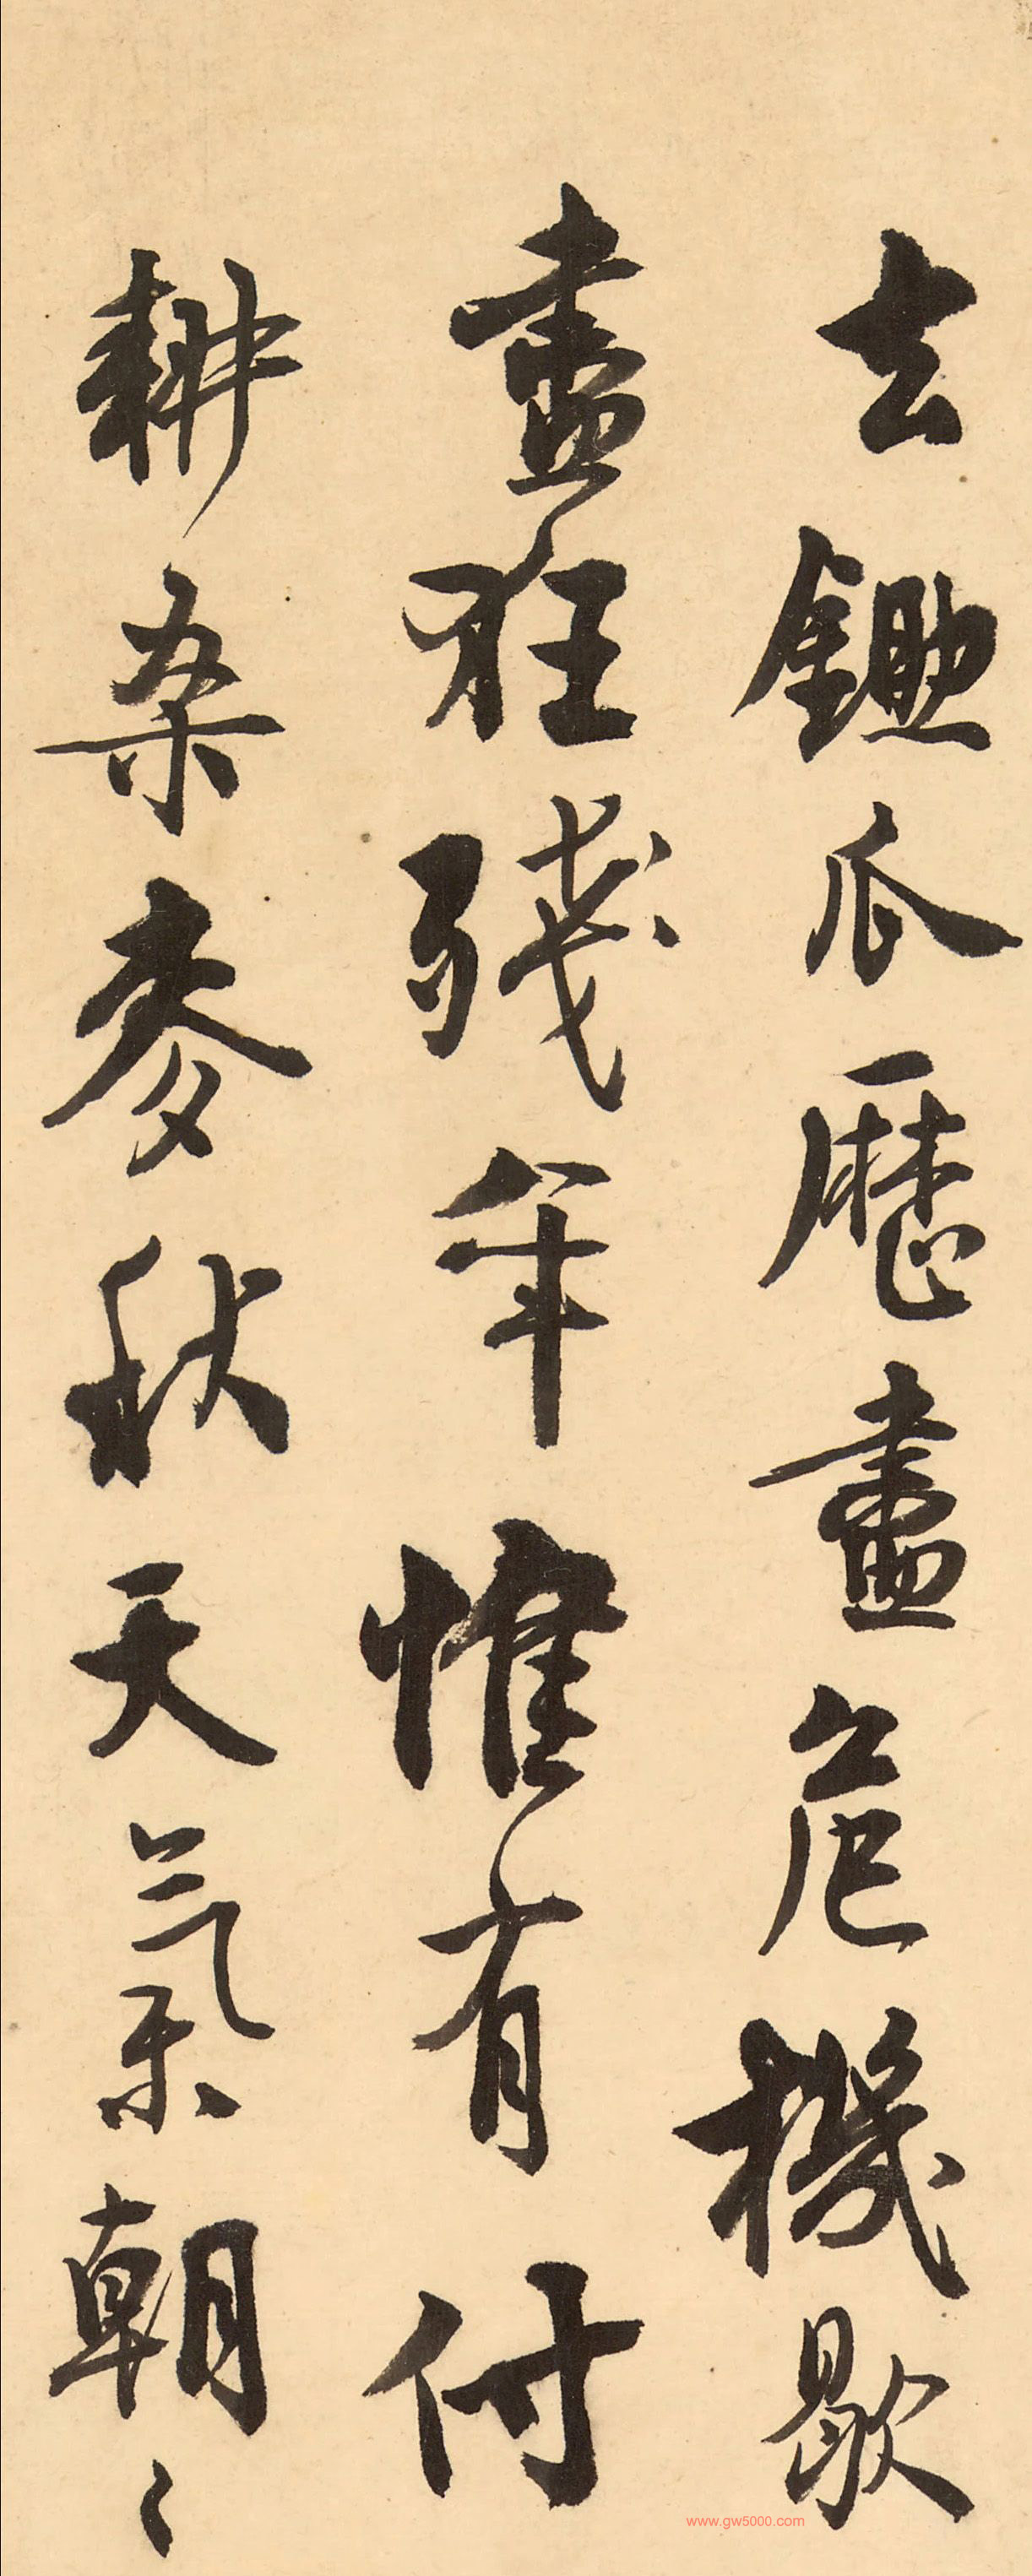 去鋤瓜歷盡危機歇
盡狂殘年惟有付
耕桒麥秋天氣朝〻
www.gw5000.com